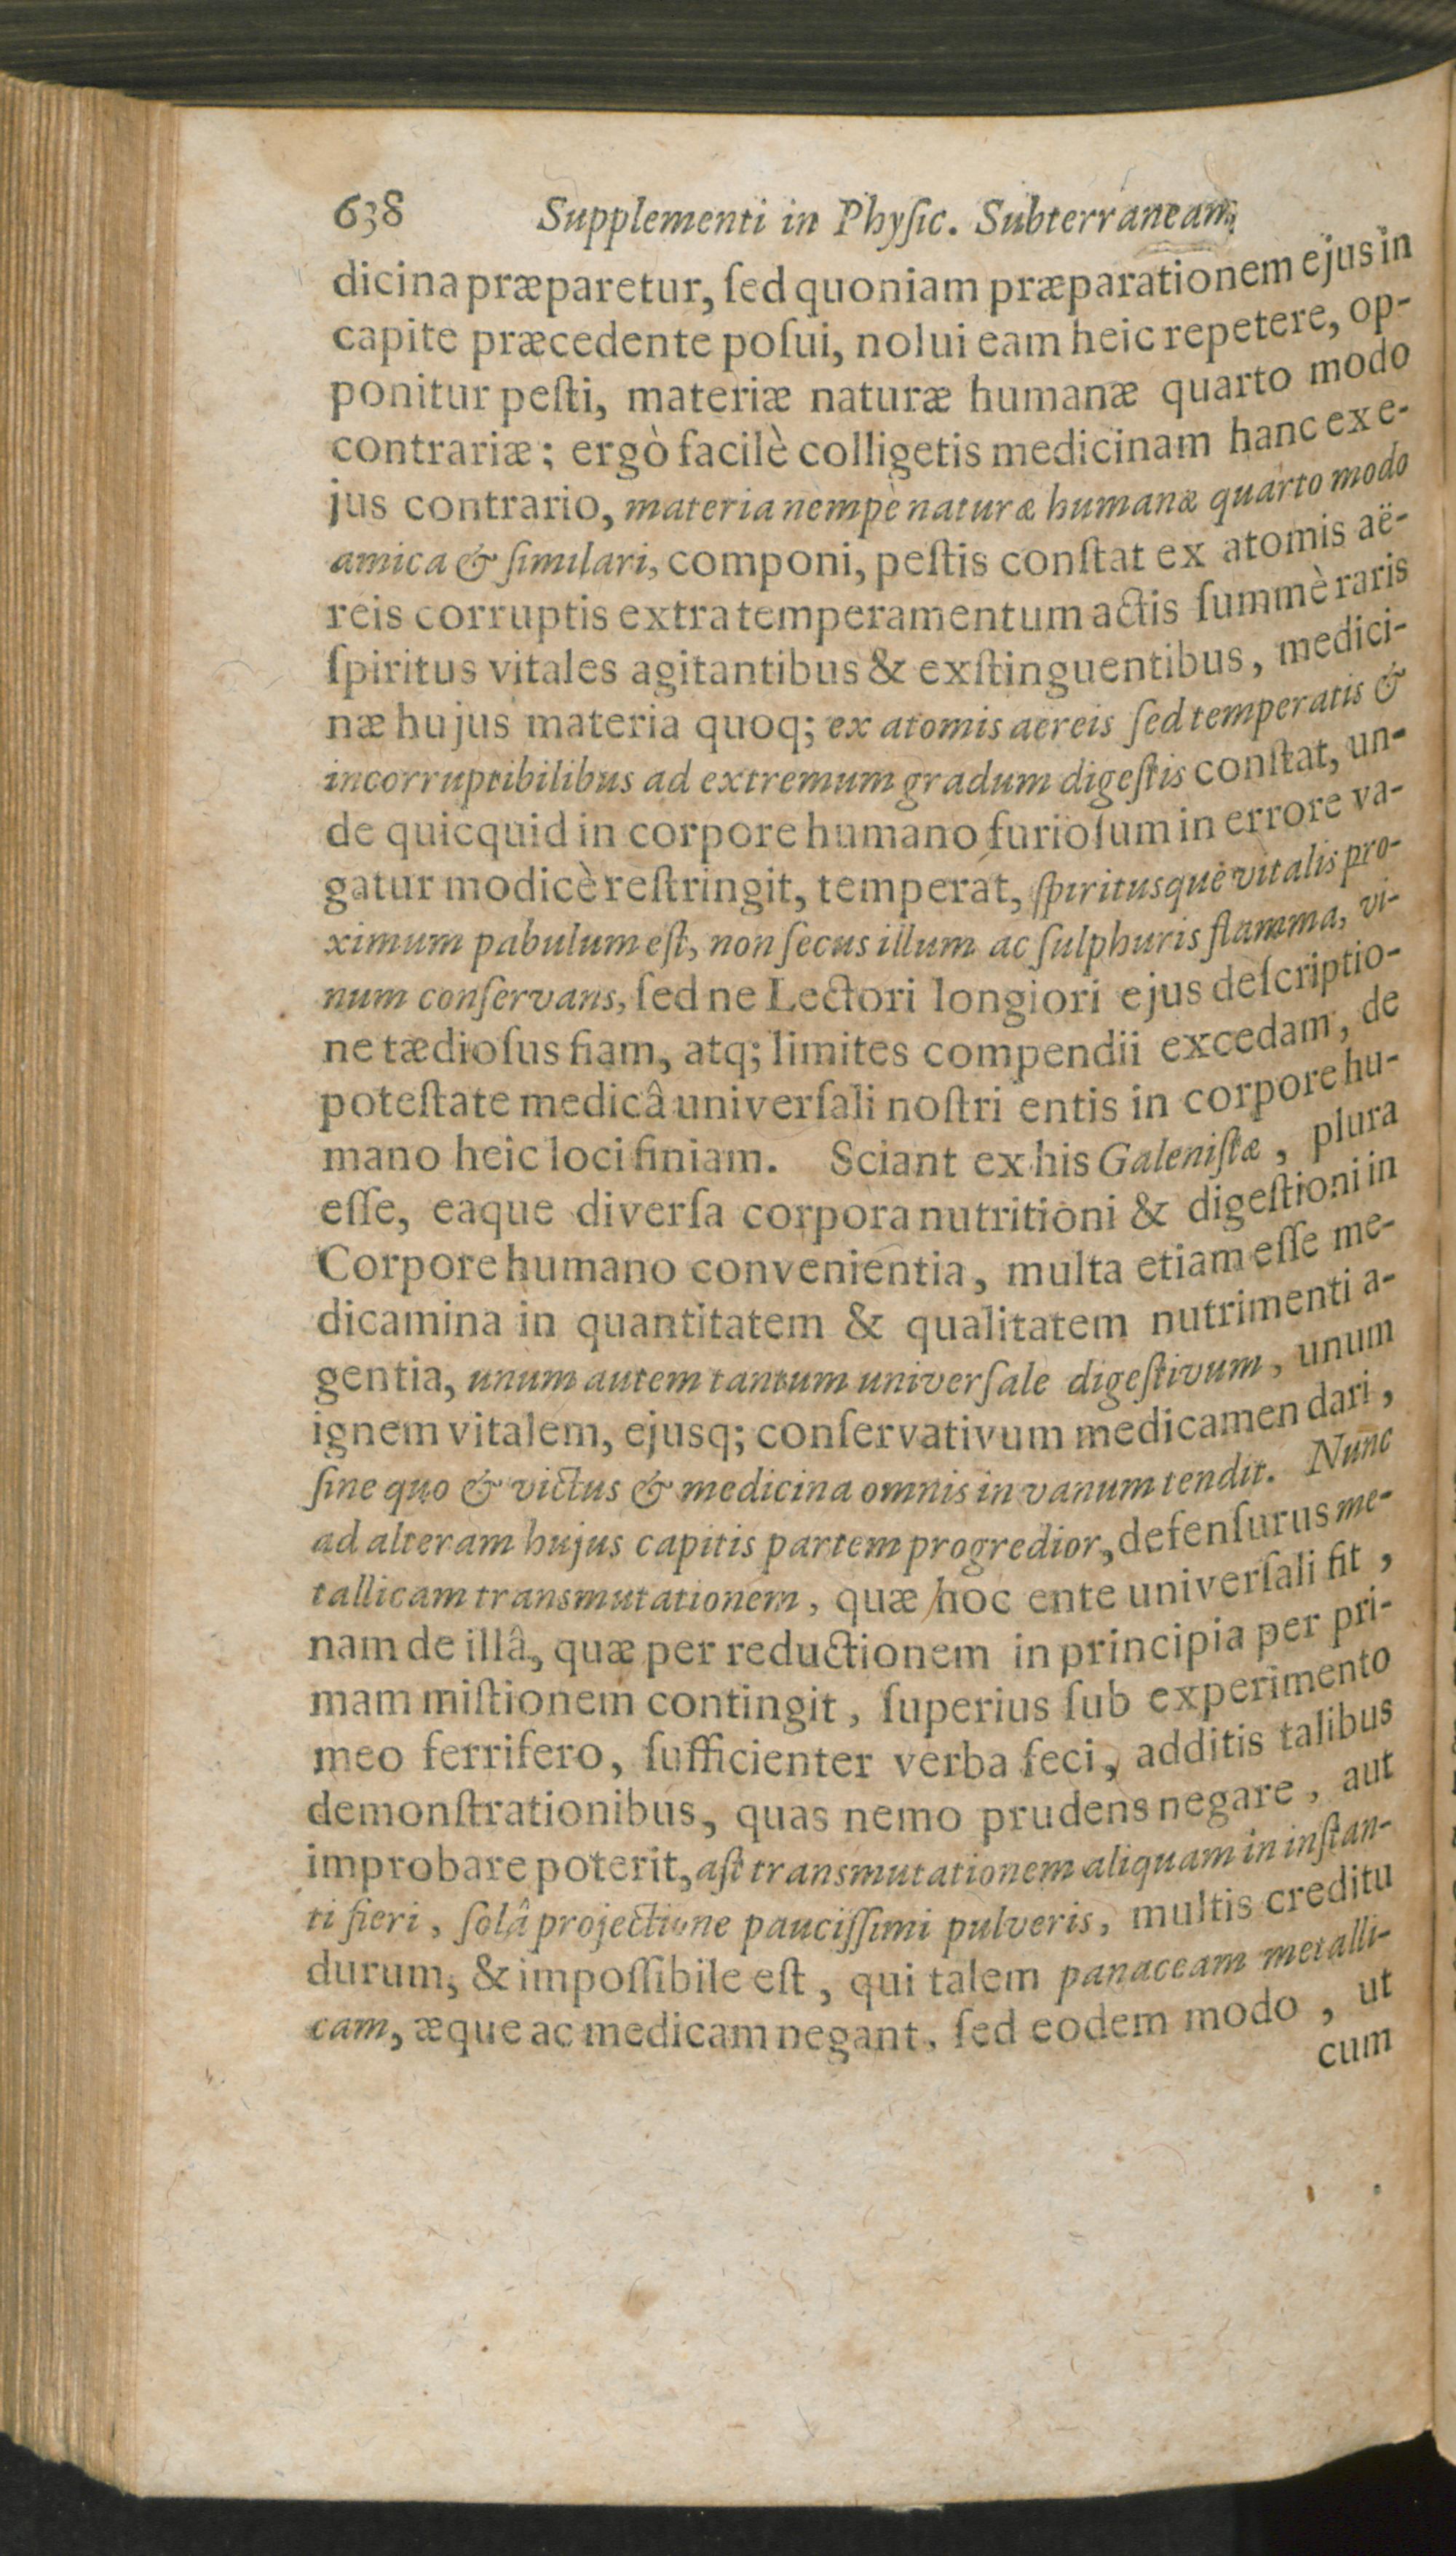 638 Supplementi in Phyſic. Subterraneam,
dicina præparetur, ſed quoniam præparationem ejus in
capite præcedente poſui, nolui eam heic repetere, op-
ponitur peſti, materiæ naturæ humanæ quarto modo
contrariæ; ergò facilè colligetis medicinam hanc ex e-
jus contrario, materia nempè naturæ humanæ quarto modo
amica & ſimilari, componi, peſtis conſtat ex atomis aë-
reis corruptis extra temperamentum actis ſummè raris
ſpiritus vitales agitantibus & exſtinguentibus, medici-
næ hujus materia quoq; ex atomis aereis ſed temperatis &
incorruptibilibus ad extremum gradum digeſtis conſtat, un-
de quicquid in corpore humano furioſum in errore va-
gatur modicè reſtringit, temperat, ſpiritusque vitalis pro-
ximum pabulum eſt, non ſecus illum ac ſulphuris flamma, vi-
num conſervans, ſed ne Lectori longiori ejus deſcriptio-
ne tædioſus fiam, atq; limites compendii excedam, de
poteſtate medicâ univerſali noſtri entis in corpore hu-
mano heic loci finiam. Sciant ex his Galeniſtæ, plura
eſſe, eaque diverſa corpora nutritioni & digeſtioni in
Corpore humano convenientia, multa etiam eſſe me-
dicamina in quantitatem & qualitatem nutrimenti a-
gentia, unum autem tantum univerſale digeſtivum, unum
ignem vitalem, ejusq; conſervativum medicamen dari,
ſine quo & victus & medicina omnis in vanum tendit. Nunc
ad alteram hujus capitis partem progredior, defenſurus me-
tallicam transmutationem, quæ hoc ente univerſali fit,
nam de illâ, quæ per reductionem in principia per pri-
mam miſtionem contingit, ſuperius ſub experimento
meo ferrifero, ſufficienter verba feci, additis talibus
demonſtrationibus, quas nemo prudens negare, aut
improbare poterit, aſt transmutationem aliquam in inſtan-
ti fieri, ſolâ projectione pauciſſimi pulveris, multis creditu
durum, & impoſſibile eſt, qui talem panaceam metalli-
cam, æque ac medicam negant, ſed eodem modo, ut
cum